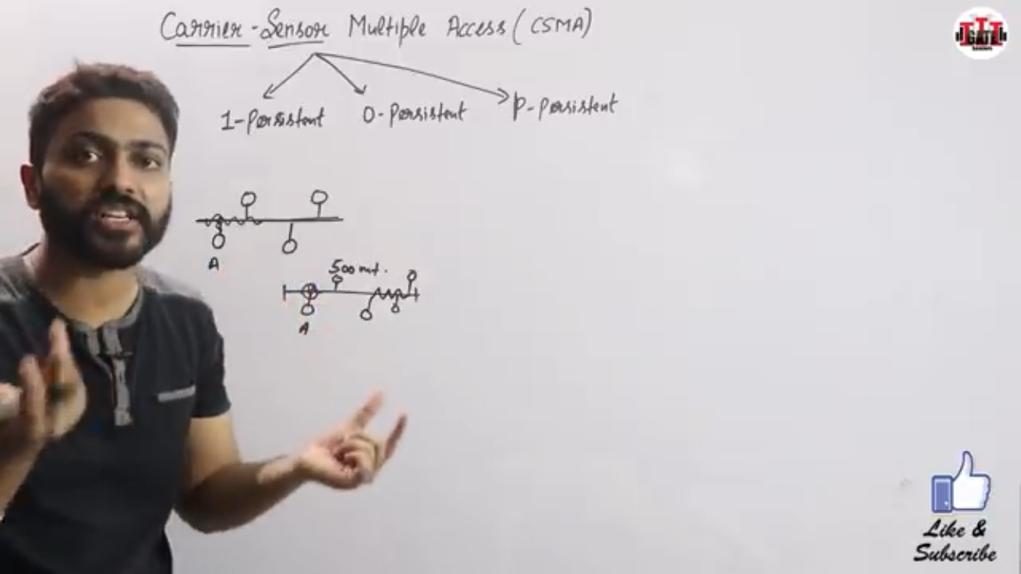 Carrier-Sensor Multiple Access (CSMA)
1-Persistent 0-Persistent P-Persistent
A
500 mt.
A
GATE
Like &
Subscribe